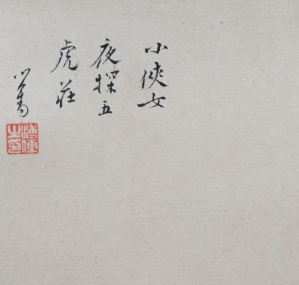 小俠女
夜探五
虎莊
心畬